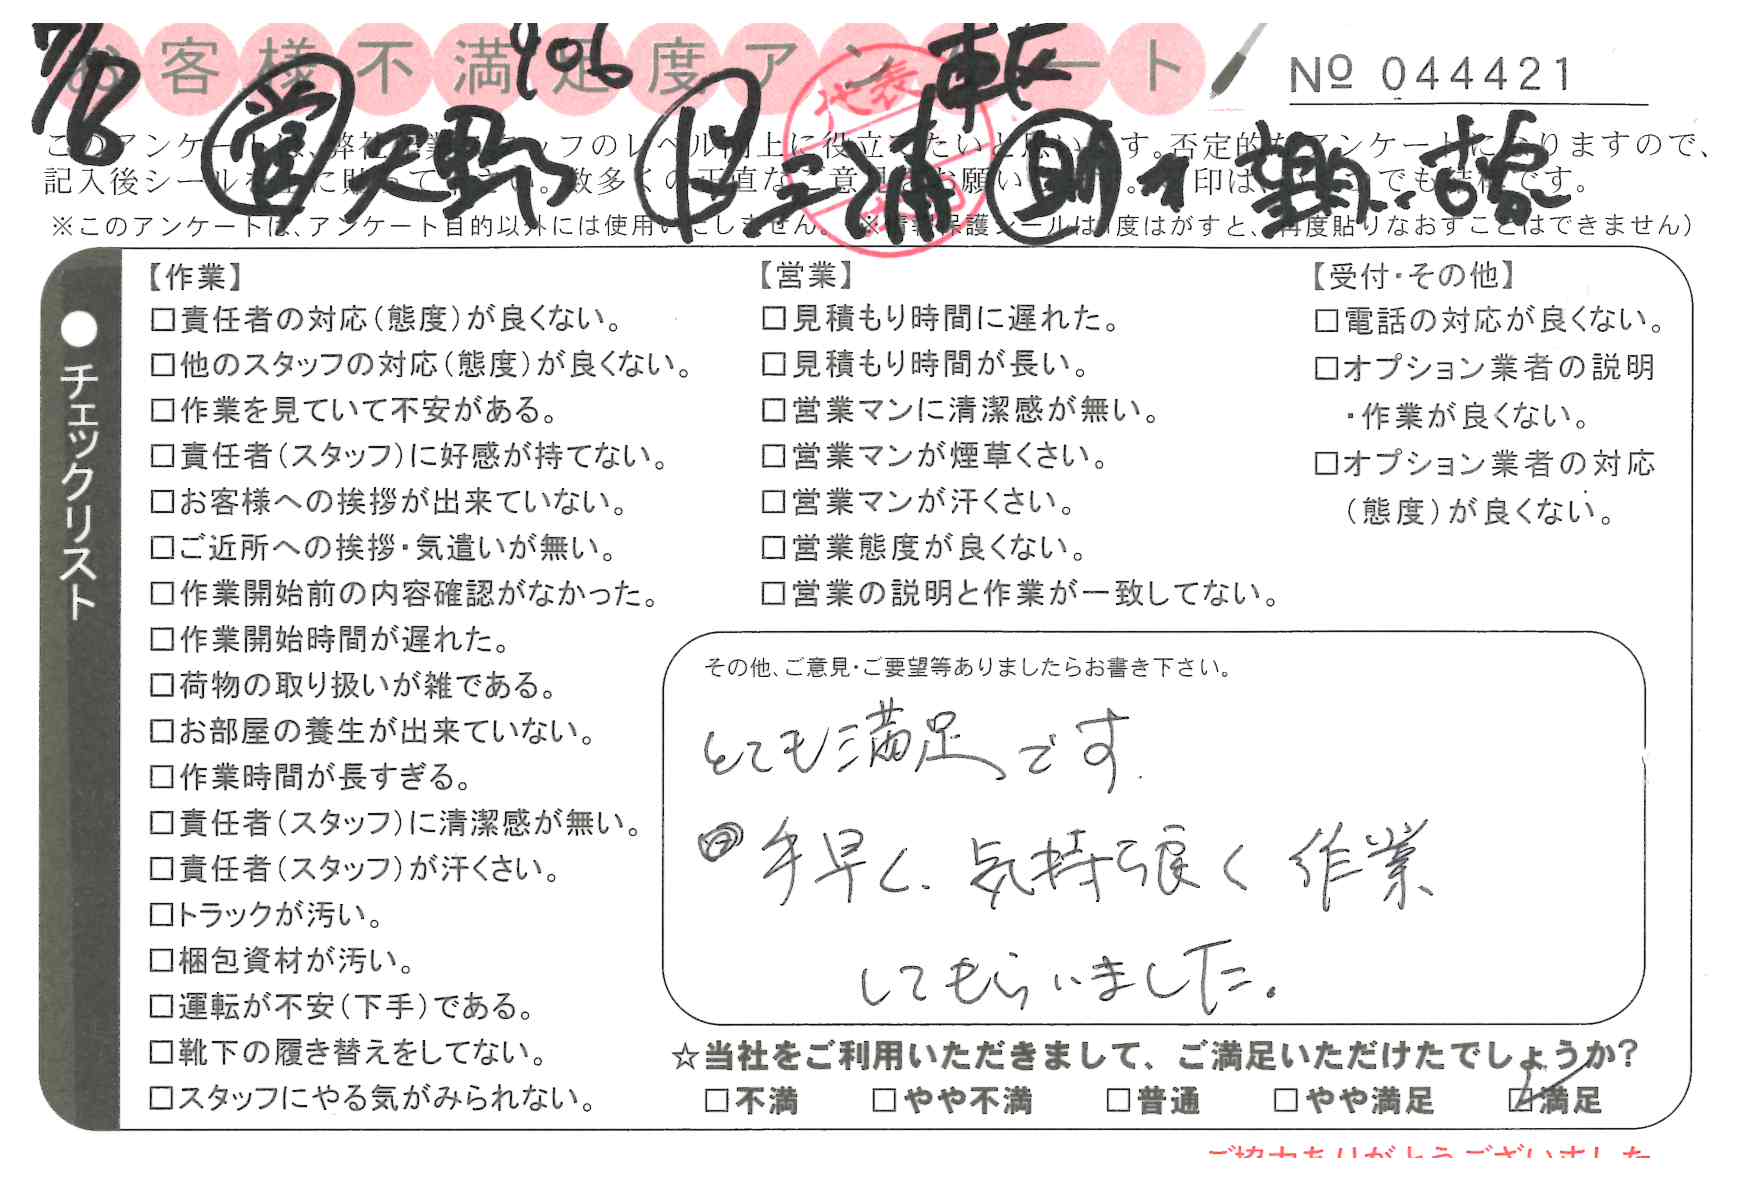 お客様不満足度アンケート
7/8 406 東
No 044421
営 矢野 三浦 助
このアンケートは、弊社営業スタッフのレベル向上に役立てたいと思います。否定的なアンケートになりますので、
記入後シールを上に貼って下さい。数多くの正直なご意見をお願いします。印は
※このアンケートは、アンケート目的以外には使用いたしません。(※情報保護シールは1度はがすと、再度貼りなおすことはできません)
●チェックリスト
【作業】
□責任者の対応(態度)が良くない。
□他のスタッフの対応(態度)が良くない。
□作業を見ていて不安がある。
□責任者(スタッフ)に好感が持てない。
□お客様への挨拶が出来ていない。
□ご近所への挨拶・気遣いが無い。
□作業開始前の内容確認がなかった。
□作業開始時間が遅れた。
□荷物の取り扱いが雑である。
□お部屋の養生が出来ていない。
□作業時間が長すぎる。
□責任者(スタッフ)に清潔感が無い。
□責任者(スタッフ)が汗くさい。
□トラックが汚い。
□梱包資材が汚い。
□運転が不安(下手)である。
□靴下の履き替えをしてない。
□スタッフにやる気がみられない。
【営業】
□見積もり時間に遅れた。
□見積もり時間が長い。
□営業マンに清潔感が無い。
□営業マンが煙草くさい。
□営業マンが汗くさい。
□営業態度が良くない。
□営業の説明と作業が一致してない。
【受付・その他】
□電話の対応が良くない。
□オプション業者の説明
・作業が良くない。
□オプション業者の対応
(態度)が良くない。
その他、ご意見・ご要望等ありましたらお書き下さい。
とても満足です.
手早く、気持ち良く作業
してもらいました。
☆当社をご利用いただきまして、ご満足いただけたでしょうか?
□不満 □やや不満 □普通 □やや満足 ☑満足
ご協力ありがとうございました